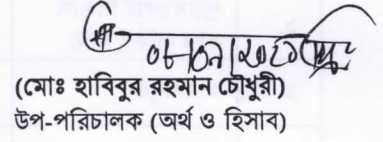 (মোঃ হাবিবুর রহমান চৌধুরী)
উপ-পরিচালক (অর্থ ও হিসাব)